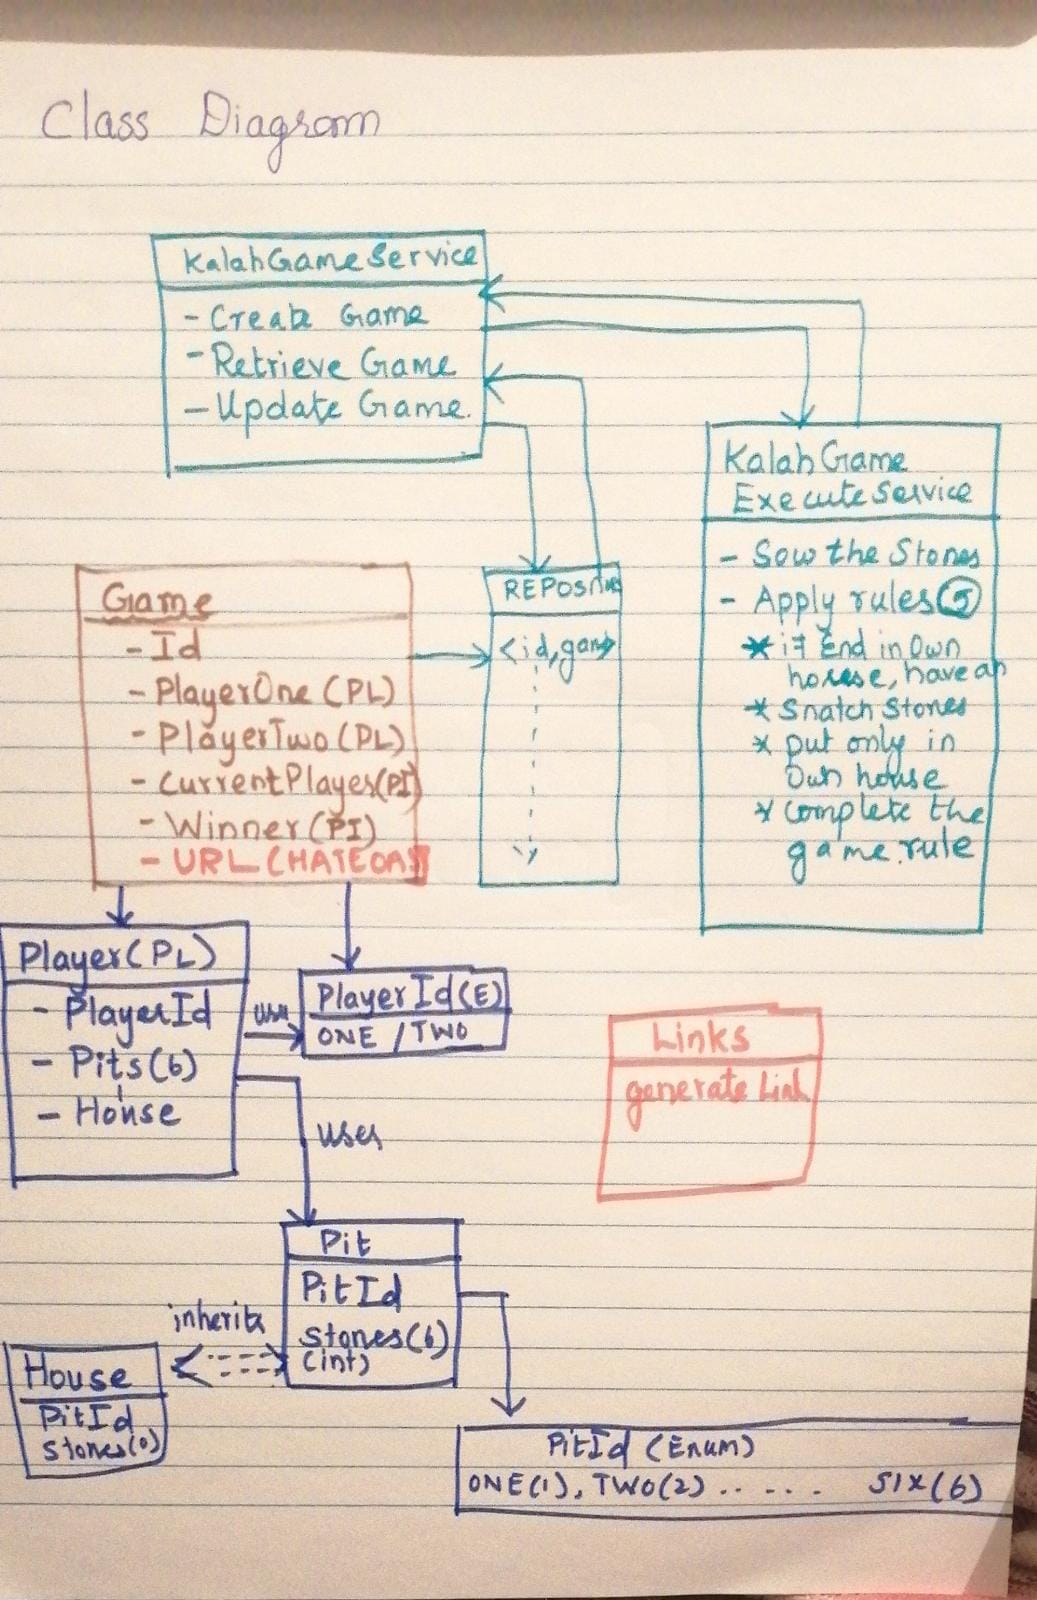 Class Diagram
KalahGameService
- Create Game
- Retrieve Game
- Update Game.
KalahGame
ExecuteService
- Sow the Stones
- Apply rules
* if End in Own
house, have an
* Snatch Stones
* put only in
Own house
* Complete the
game rule
Game
- Id
- PlayerOne (PL)
- PlayerTwo (PL)
- CurrentPlayer(PI)
- Winner (PI)
- URL (HATEOAS
<id, game>
Player(PL)
- PlayerId
- Pits(6)
- House
use
PlayerId(E)
ONE / TWO
Links
generate Link
uses
Pit
PitId
Stones(6)
(int)
inherits
House
PitId
Stones(0)
PitId (Enum)
ONE(1), TWO(2) ..... SIX(6)